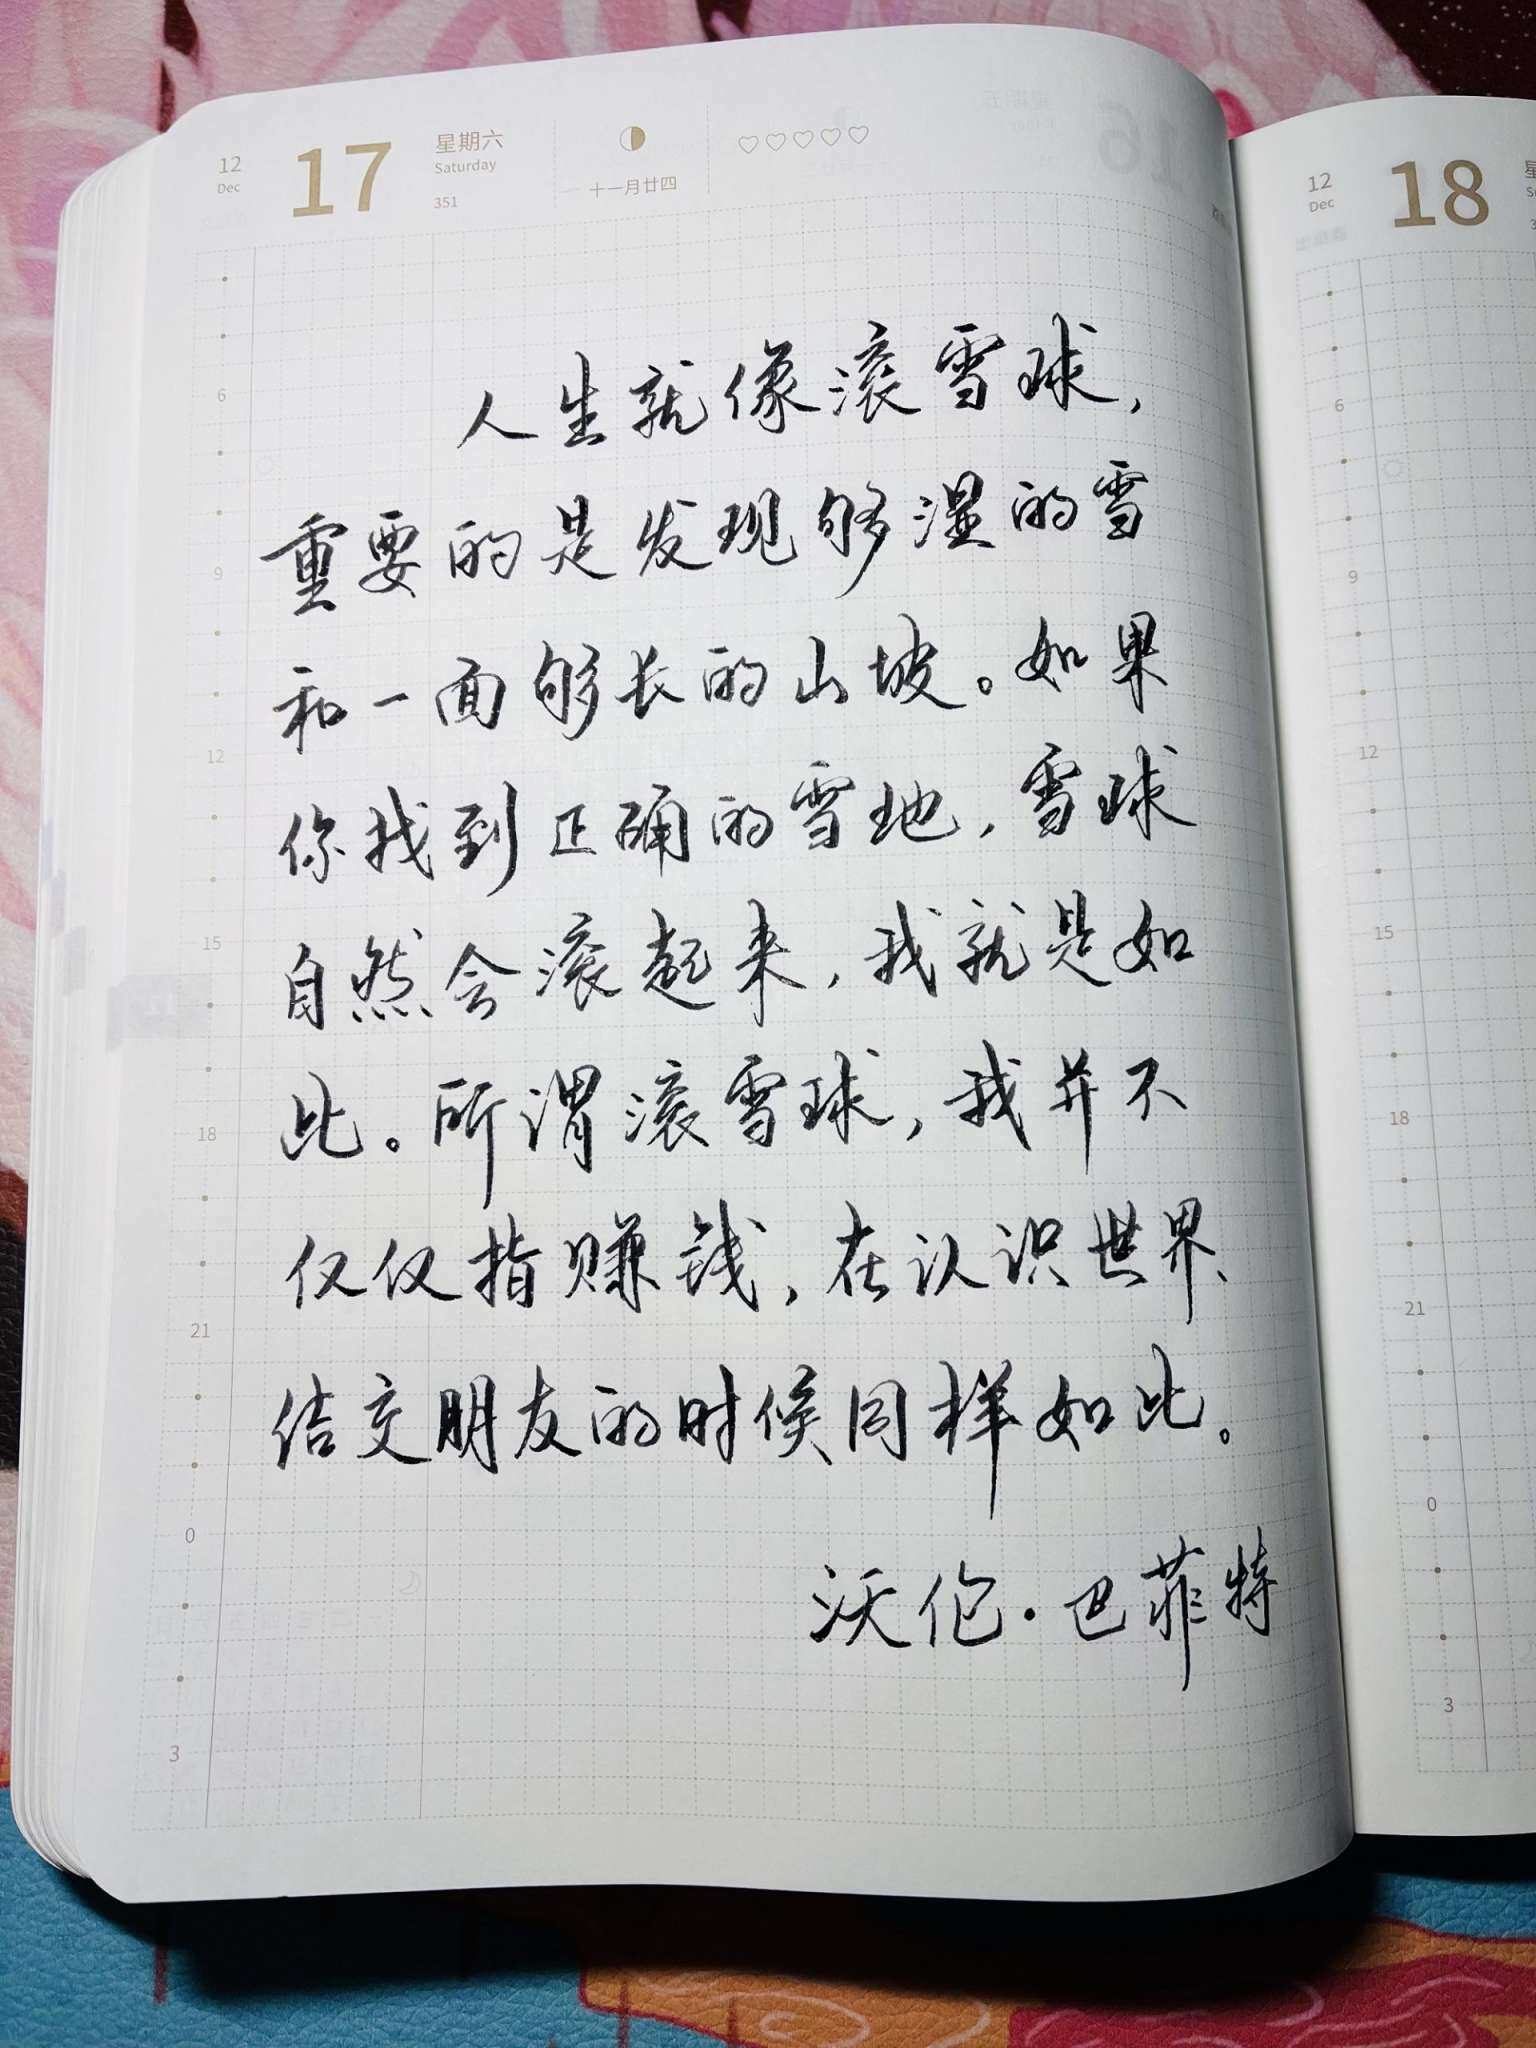 12 Dec 17 星期六 Saturday 351 十一月廿四
12 Dec 18
人生就像滚雪球，
重要的是发现够湿的雪
和一面够长的山坡。如果
你找到正确的雪地，雪球
自然会滚起来，我就是如
此。所谓滚雪球，我并不
仅仅指赚钱，在认识世界、
结交朋友的时候同样如此。
沃伦·巴菲特
6
9
12
15
18
21
0
3
6
9
12
15
18
21
0
3